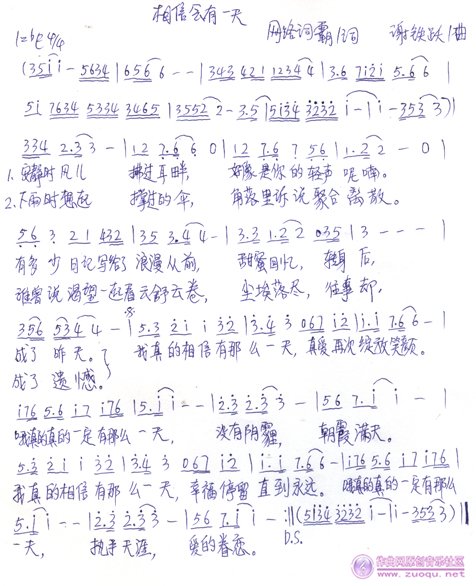 相信会有一天
1=♭E 4/4 网络词霸 词 谢铁跃 曲
(35i i - 5634 | 6566 - - | 343 421 1234 4 | 3.6 7i2i 5.6 6 |
5i 7634 5334 3465 | 3552 2 - 3.5 | 5i34 3232 i - | i - 353 3) |
334 2.3 3 - | 12 7.6 6 0 | 12 7.6 7 56 | 1.2 2 - 0 |
1. 安静时风儿 拂过耳畔 好像是你的轻声呢喃。
2. 下雨时想起 撑过的伞, 角落里诉说聚合离散。
56 3 21 432 | 35 3.4 4 - | 3.3 1.2 2 035 | 3 - - - |
有多少日记写给了浪漫从前, 甜蜜回忆, 转身后,
谁曾说渴望一起看云舒云卷, 尘埃落尽, 往事却,
356 534 4 - | 5.3 2i i 32 | 3.4 3 067 i2 | i.i 7.6 6 - |
成了昨天。 我真的相信有那么一天, 真爱再次绽放笑颜。
成了遗憾。
i76 5.6 i7 i76 | 5.i i - - | 2.3 2.3 3 - | 56 7.i i - |
我真的真的一定有那么一天, 没有阴霾, 朝霞满天。
5.3 2i i 32 | 3.4 3 067 i2 | i.i 7.6 6 - | i76 5.6 i7 i76 |
我真的相信有那么一天, 幸福停留直到永远。 我真的真的一定有那么
5.i i - - | 2.3 2.3 3 - | 56 7.i i - :‖ (5i34 3232 i - | i - 353 3) ‖
一天, 执手天涯, 爱的眷恋。 D.S.
作曲网原创音乐社区
www.zuoqu.net